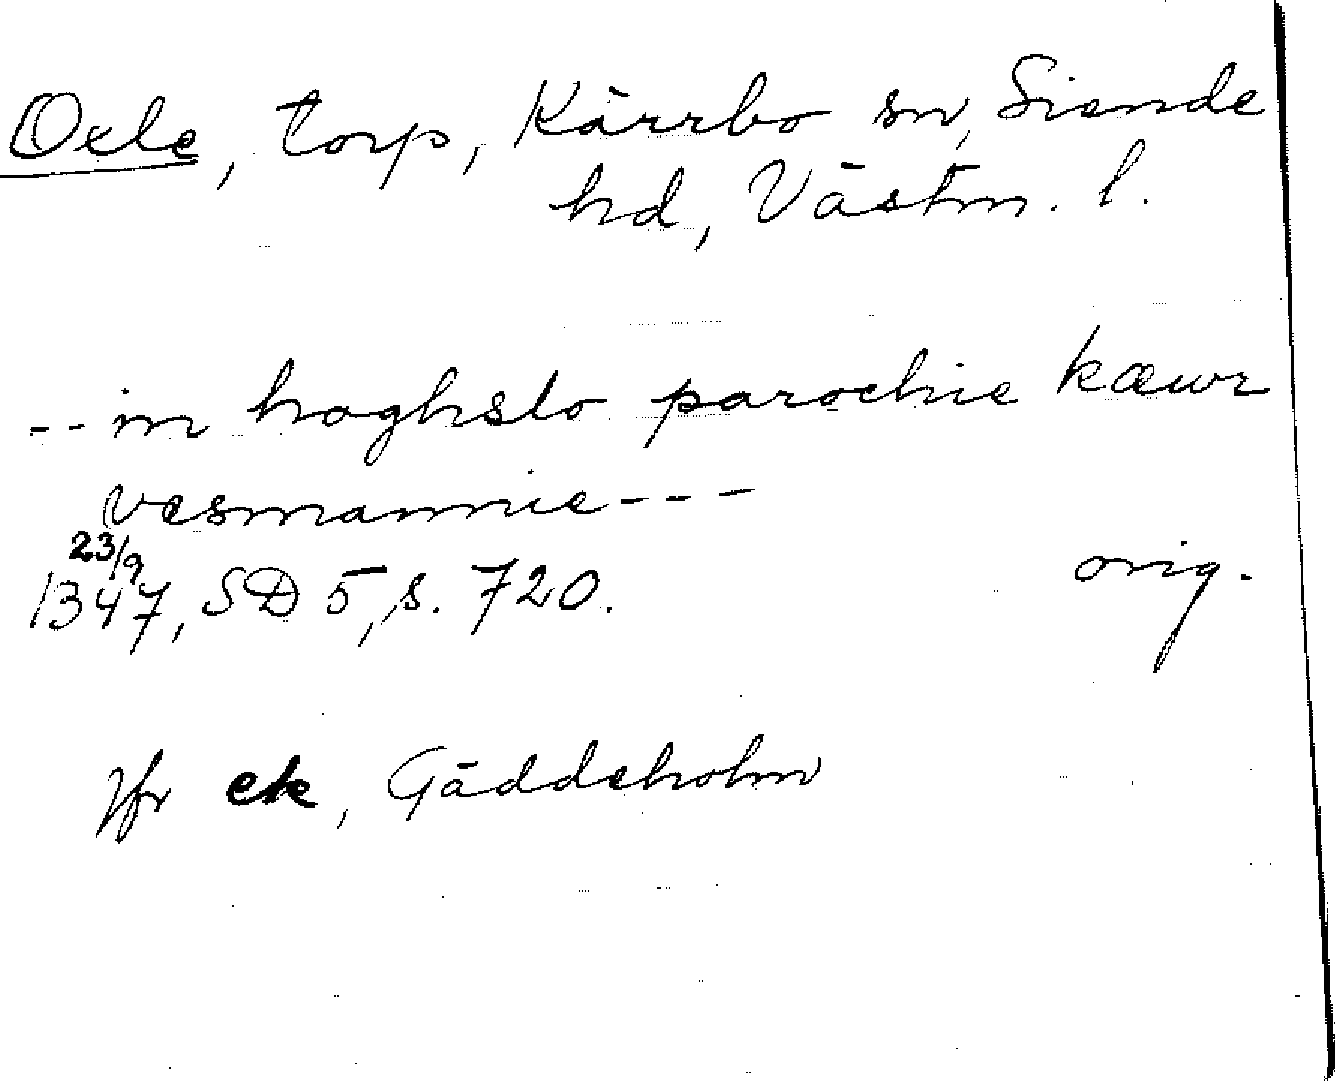 Oxle, torp, Kärrbo sn, Siende
hd, Västm. l.
-- in hoghslo parochie kæwr
vesmannie ---
23/9
1347, SD 5, s. 720. orig.
Jfr ek, Gäddeholm